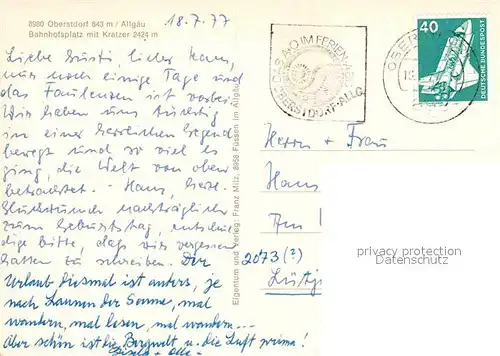 8980 Oberstdorf 843 m / Allgäu
Bahnhofsplatz mit Kratzer 2424 m
18.7.77
Liebe Gusti, lieber Hans,
nur noch einige Tage und
das Faulenzen ist vorbei.
Wir haben uns
in einer herrlichen Gegend
bewegt und so viel es
ging, die Welt von oben
betrachtet. - Hans, herzl.
Glückwünsche nachträglich
zum Geburtstag, entschul-
dige bitte, daß wir vergessen
hatten zu schreiben. Der
Urlaub diesmal ist anders, je
nach Launen der Sonne, mal
wandern, mal lesen, mal wandern...
Aber schön ist die Bergwelt u. die Luft prima!
Eigentum und Verlag: Franz Milz, 8958 Füssen im Allgäu
DAS A·O IM FERIEN
OBERSTDORF-ALLG.
OBER
40
DEUTSCHE BUNDESPOST
Herrn + Frau
Hans
Am
2073 (?)
Lütj
privacy protection
Datenschutz